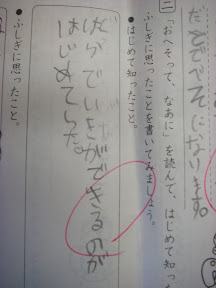 たとでへそになります。
二 「おへそって、なあに」を読んで、はじめて知っ
ふしぎに思ったことを書いてみましょう。
●はじめて知ったこと。
できるのが
はじめてしった。
●ふしぎに思ったこと。